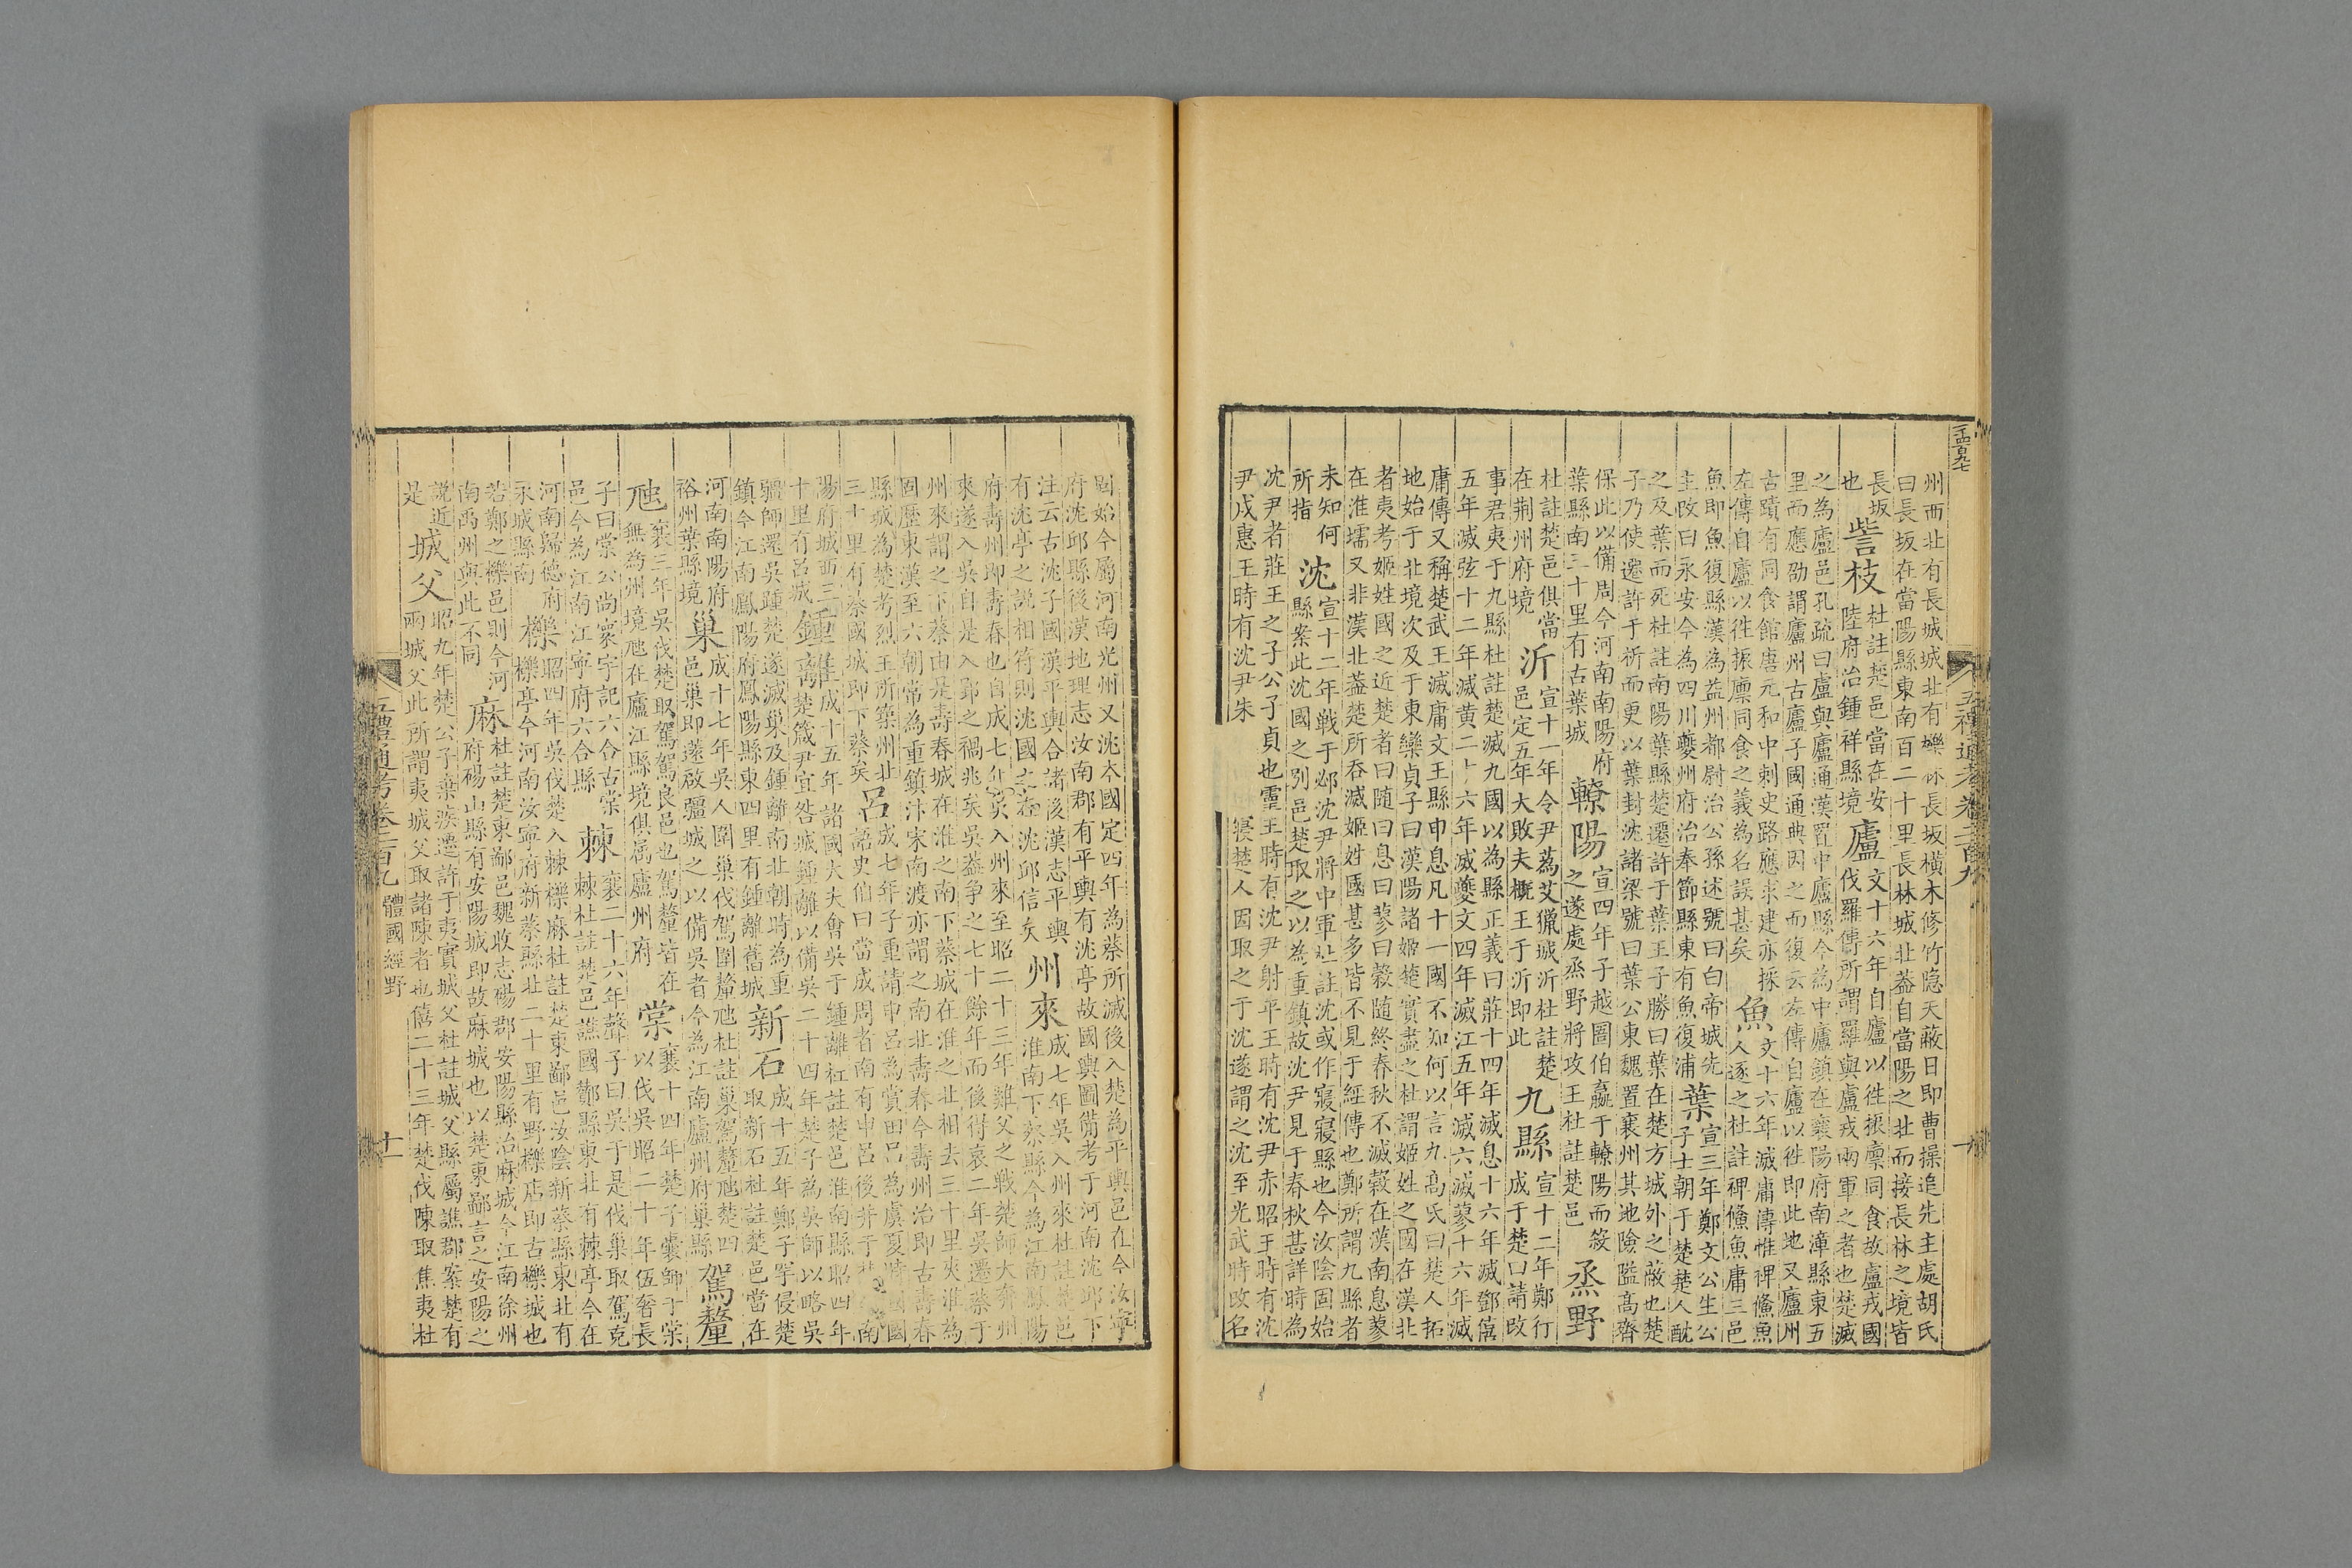 州西北有長城城北有櫟林長坂橫木修竹隐天蔽日即曹操追先主處胡氏
曰長坂在當陽縣東南百二十里長林城北葢自當陽之北而接長林之境皆
長坂
也
訾枝
杜註楚邑當在安
陸府治鍾祥縣境
廬
文十六年自廬以徃振廪同食故盧戎國
伐羅傳所謂羅與盧戎兩軍之者也楚滅
之為廬邑孔疏曰盧與廬通漢置中廬縣今為中廬鎮在襄陽府南漳縣東五
里而應劭謂廬州古廬子國通典因之而復云左傳自廬以徃即此地又廬州
古蹟有同食館唐元和中刺史路應求建亦採
左傳自廬以徃振廪同食之義為名誤甚矣
魚
文十六年滅庸傳惟裨鯈魚
人逐之杜註裨鯈魚庸三邑
魚即魚復縣漢為益州都尉治公孫述號曰白帝城先
主改曰永安今為四川夔州府治奉節縣東有魚復浦
葉
宣三年鄭文公生公
子士朝于楚楚人酖
之及葉而死杜註南陽葉縣楚遷許于葉王子勝曰葉在楚方城外之蔽也楚
子乃使遷許于析而更以葉封沈諸梁號曰葉公東魏置襄州其地險隘髙齊
保此以備周今河南南陽府
葉縣南三十里有古葉城
轑陽
宣四年子越圖伯嬴于轑陽而殺
之遂處烝野將攻王杜註楚邑
烝野
杜註楚邑俱當
在荆州府境
沂
宣十一年令尹蒍艾獵城沂杜註楚
邑定五年大敗夫概王于沂即此
九縣
宣十二年鄭行
成于楚曰請改
事君夷于九縣杜註楚滅九國以為縣正義曰莊十四年滅息十六年滅鄧僖
五年滅弦十二年滅黄二十六年滅夔文四年滅江五年滅六滅蓼十六年滅
庸傳又稱楚武王滅庸文王縣申息凡十一國不知何以言九髙氏曰楚人拓
地始于北境次及于東欒貞子曰漢陽諸姬楚實盡之杜謂姬姓之國在漢北
者夷考姬姓國之近楚者曰随曰息曰蓼曰穀随終春秋不滅穀在漢南息蓼
在淮壖又非漢北葢楚所吞滅姬姓國甚多皆不見于經傳也鄭所謂九縣者
未知何
所指
沈
宣十二年戰于邲沈尹將中軍杜註沈或作寢寢縣也今汝陰固始
縣案此沈國之別邑楚取之以為重鎮故沈尹見于春秋甚詳時為
沈尹者莊王之子公子貞也靈王時有沈尹射平王時有沈尹赤昭王時有沈
尹戌惠王時有沈尹朱
寢楚人因取之于沈遂謂之沈至光武時改名
固始今屬河南光州又沈本國定四年為蔡所滅後入楚為平輿邑在今汝寧
府沈邱縣後漢地理志汝南郡有平輿有沈亭故國輿圖備考于河南沈邱下
注云古沈子國漢平輿合諸後漢志平輿
有沈亭之説相符則沈國之在沈邱信矣
州來
成七年吳入州來杜註楚邑
淮南下蔡縣今為江南鳳陽
府壽州即壽春也自成七年吳入州來至昭二十三年雞父之戰楚師大奔州
來遂入吳自是入郢之禍兆矣吳葢爭之七十餘年而後得哀二年吳遷蔡于
州來謂之下蔡由是壽春城在淮之南下蔡城在淮之北相去三十里夾淮為
固歷東漢至六朝常為重鎮汴宋南渡亦謂之南北壽春今壽州治即古壽春
縣城為楚考烈王所築州北
三十里有蔡國城即下蔡矣
呂
成七年子重請申呂為賞田呂為虞夏時國國
語史伯曰當成周者南有申呂後并于楚今南
陽府城西三
十里有呂城
鍾離
成十五年諸國大夫會吳于鍾離杜註楚邑淮南縣昭四年
楚箴尹宜咎城鍾離以備吳二十四年楚子為吳師以略吳
疆師還吳踵楚遂滅巢及鍾離南北朝時為重
鎮今江南鳳陽府鳳陽縣東四里有鍾離舊城
新石
成十五年鄭子罕侵楚
取新石杜註楚邑當在
河南南陽府
裕州葉縣境
巢
成十七年吳人圍巢伐駕圍釐虺杜註巢駕釐虺楚四
邑巢即薳啟疆城之以備吳者今為江南廬州府巢縣
駕釐
虺
襄三年吳伐楚取駕駕良邑也駕釐皆在
無為州境虺在廬江縣境俱属廬州府
棠
襄十四年楚子囊師于棠
以伐吳昭二十年伍奢長
子曰棠公尚寰宇記六合古棠
邑今為江南江寧府六合縣
棘
襄二十六年聲子曰吳于是伐巢取駕克
棘杜註楚邑譙國酇縣東北有棘亭今在
河南歸德府
永城縣南
櫟
昭四年吳伐楚入棘櫟麻杜註楚東鄙邑汝陰新蔡縣東北有
櫟亭今河南汝寧府新蔡縣北二十里有野櫟店即古櫟城也
若鄭之櫟邑則今河
南禹州與此不同
麻
杜註楚東鄙邑魏收志碭郡安陽縣治麻城今江南徐州
府碭山縣有安陽城即故麻城也以楚東鄙言之安陽之
説近
是
城父
昭九年楚公子棄疾遷許于夷實城父杜註城父縣屬譙郡案楚有
兩城父此所謂夷城父取諸陳者也僖二十三年楚伐陳取焦夷杜
五禮通考卷二百九 體國經野
十一